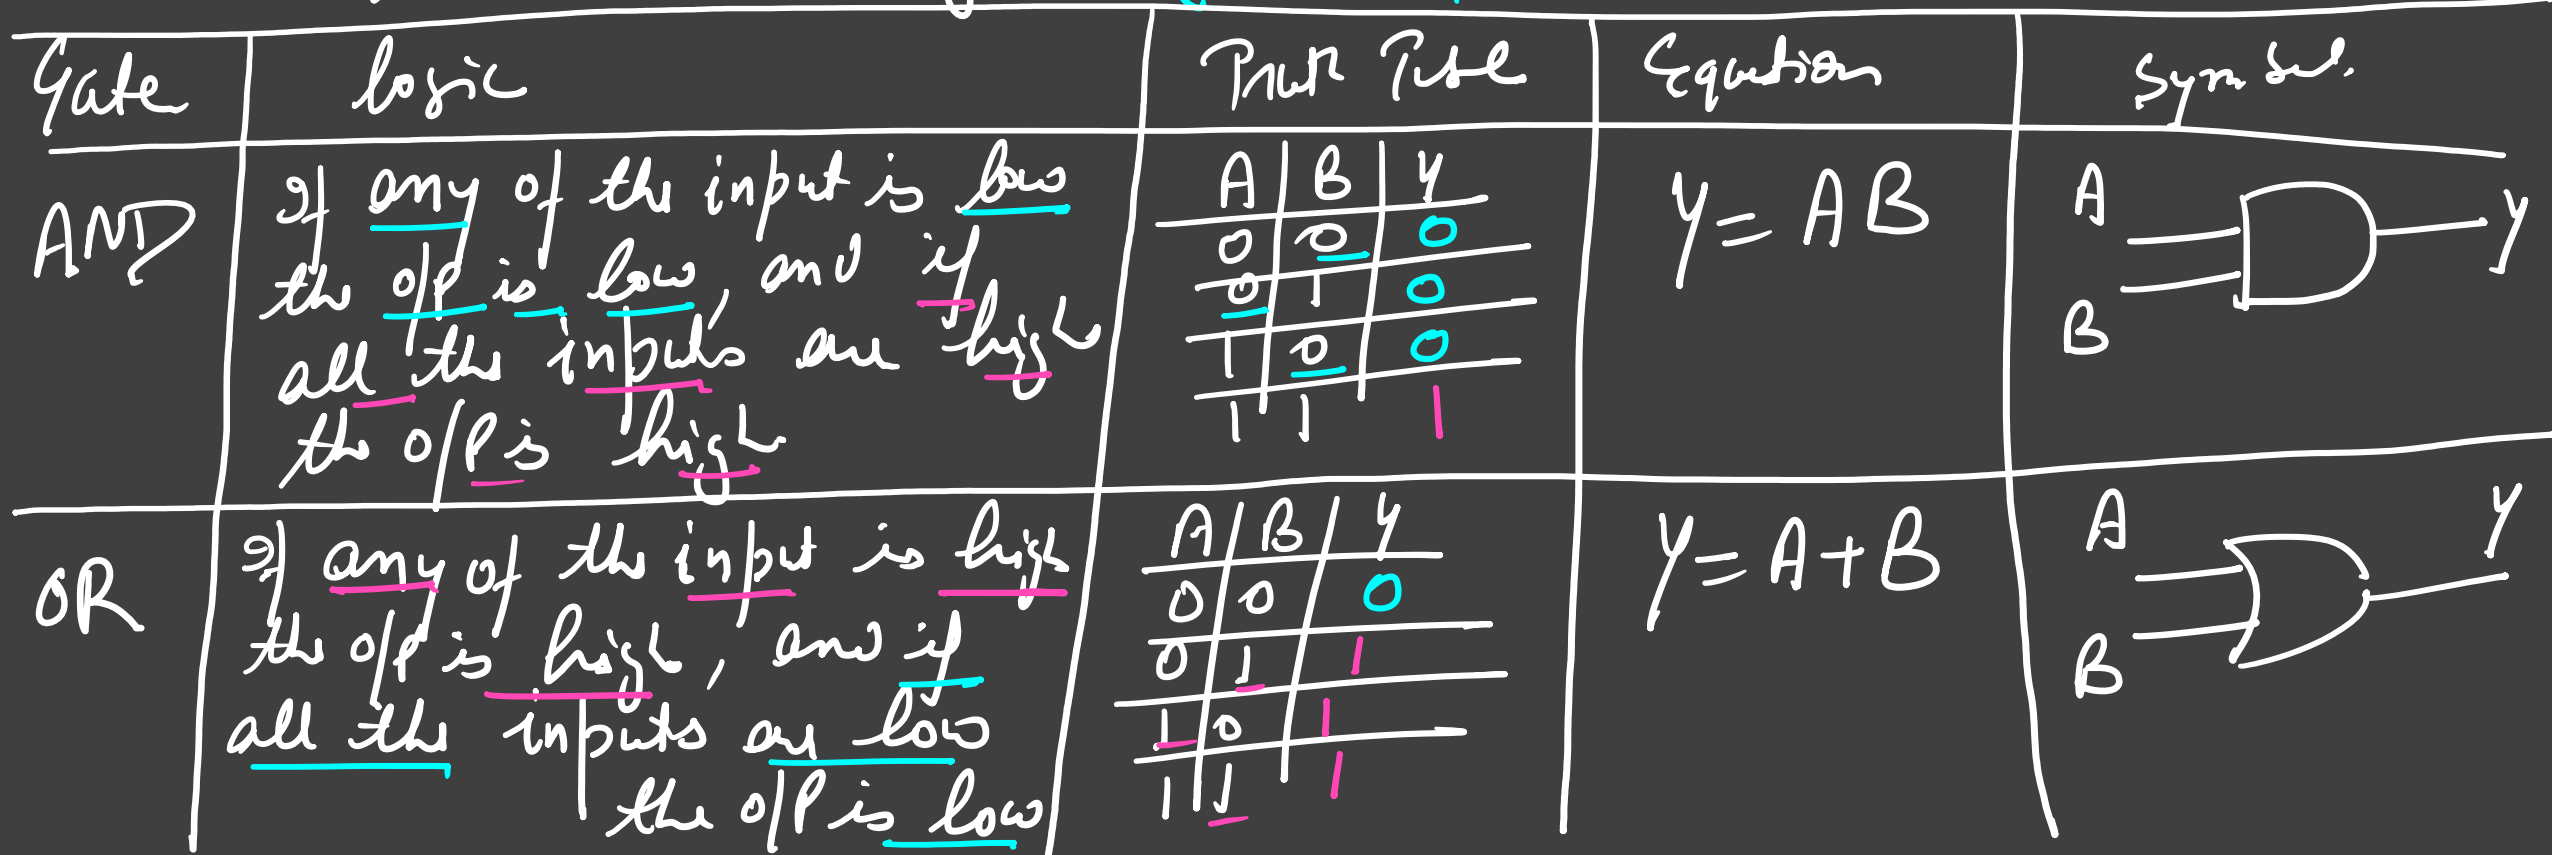 Gate
logic
Truth Table
Equation
Symbol.
AND
If any of the input is low
the o/p is low, and if
all the inputs are high
the o/p is high
A B Y
0 0 0
0 1 0
1 0 0
1 1 1
Y = AB
A
B
Y
OR
If any of the input is high
the o/p is high, and if
all the inputs are low
the o/p is low
A B Y
0 0 0
0 1 1
1 0 1
1 1 1
Y = A+B
A
B
Y